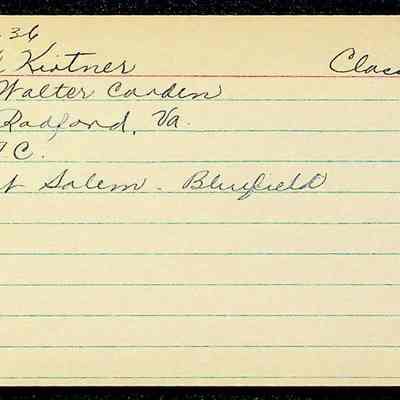 36
Kirtner Class
Walter Carden
Radford, Va.
C.
Salem - Bluefield